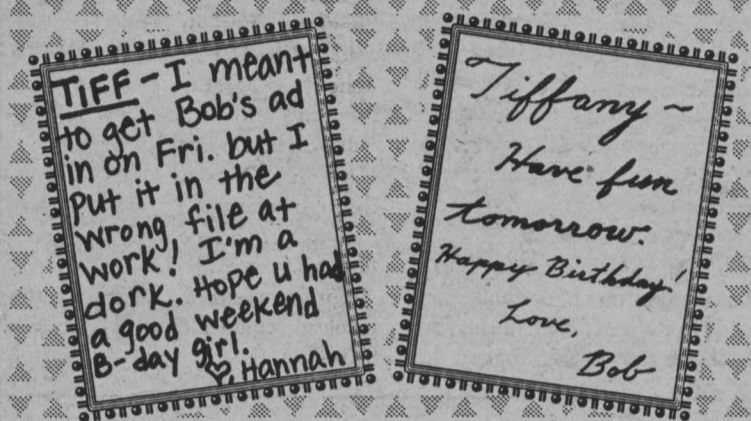 TIFF - I meant
to get Bob's ad
in on Fri. but I
put it in the
wrong file at
work! I'm a
dork. Hope u had
a good weekend
B-day girl.
♡, Hannah
Tiffany ~
Have fun
tomorrow.
Happy Birthday!
Love,
Bob